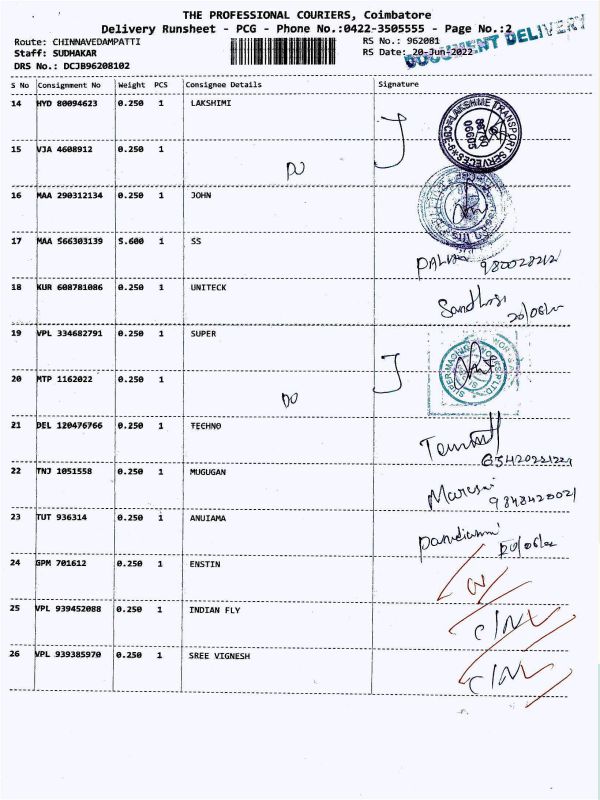 THE PROFESSIONAL COURIERS, Coimbatore
Delivery Runsheet - PCG - Phone No.:0422-3505555 - Page No.:2
DOCUMENT DELIVERY
Route: CHINNAVEDAMPATTI RS No.: 962081
Staff: SUDHAKAR RS Date: 20-Jun-2022
DRS No.: DCJB96208102
S No Consignment No Weight PCS Consignee Details Signature
14 HYD 80094623 0.250 1 LAKSHIMI
15 VJA 4608912 0.250 1 DO
16 MAA 290312134 0.250 1 JOHN
17 MAA 566303139 5.600 1 SS
9800282121
18 KUR 608781086 0.250 1 UNITECK
19 VPL 334682791 0.250 1 SUPER
20 MTP 1162022 0.250 1 DO
21 DEL 120476766 0.250 1 TECHNO
22 TNJ 1051558 0.250 1 MUGUGAN
9848420021
23 TUT 936314 0.250 1 ANUIAMA
24 GPM 701612 0.250 1 ENSTIN
25 VPL 939452088 0.250 1 INDIAN FLY C/NL
26 VPL 939385970 0.250 1 SREE VIGNESH C/NL